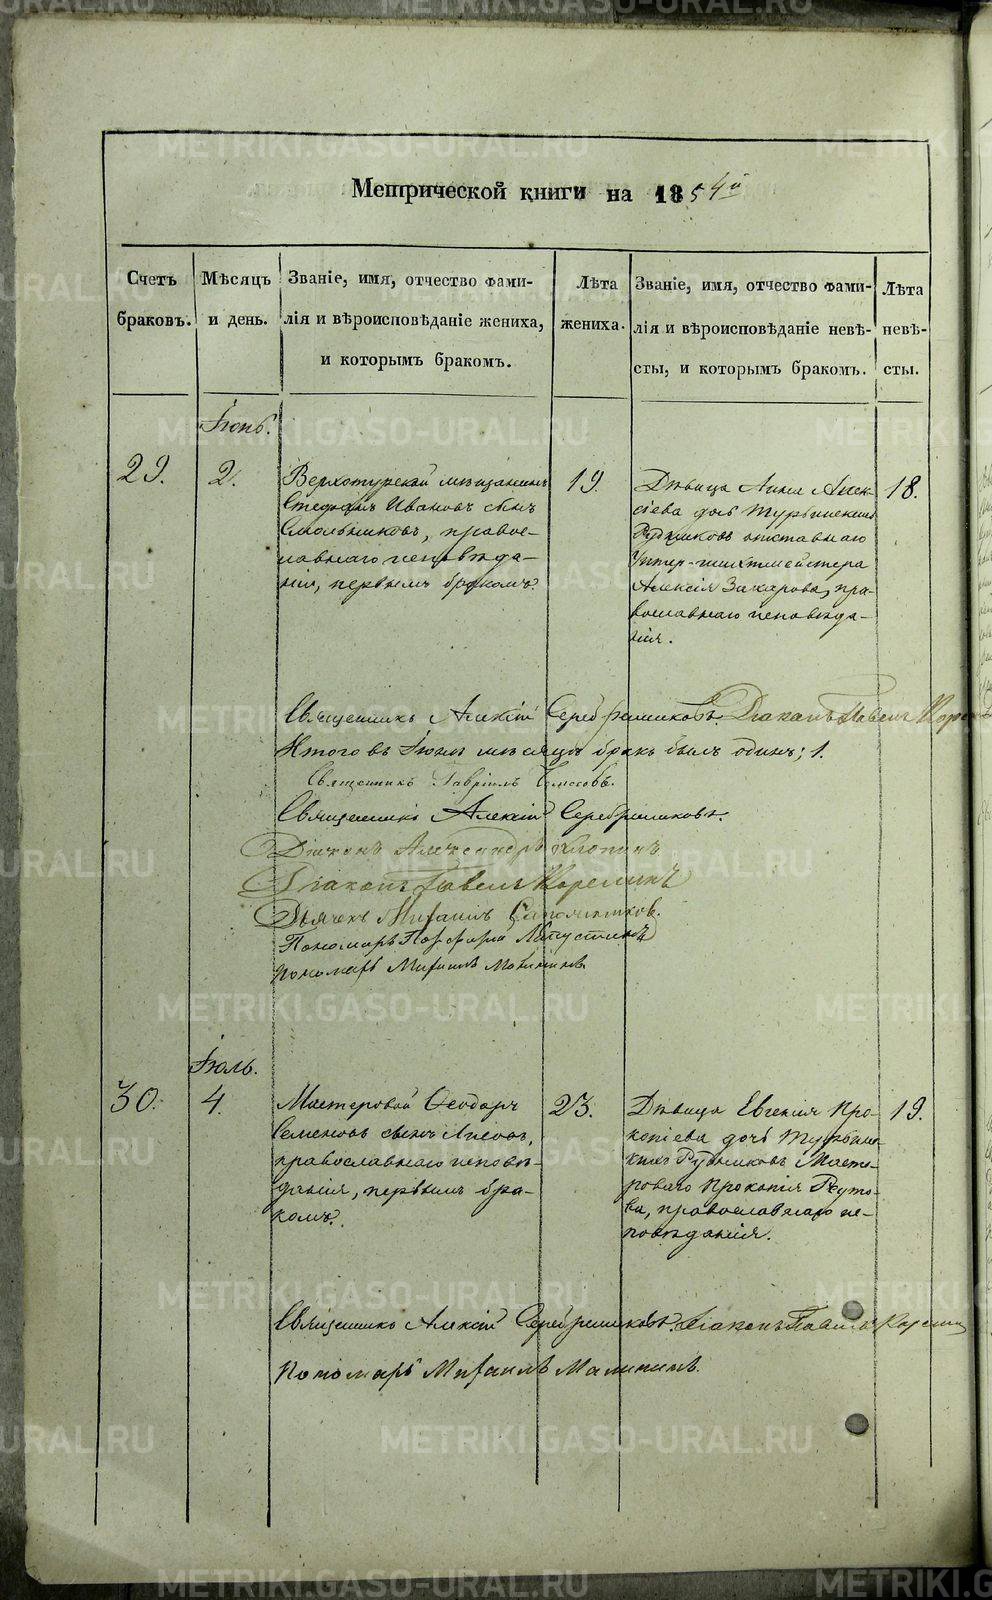 Метрической книги на 1854й
Счетъ браковъ.
Мѣсяцъ и день.
Званіе, имя, отчество фами-
лія и вѣроисповѣданіе жениха,
и которымъ бракомъ.
Лѣта жениха.
Званіе, имя, отчество фами-
лія и вѣроисповѣданіе невѣ-
сты, и которымъ бракомъ.
Лѣта невѣ-
сты.
Іюнь.
29.
2.
Верхотурскай мѣщанинъ
Стефанъ Ивановъ сынъ
Смольниковъ, правос-
лавнаго исповѣда-
нія, первымъ бракомъ.
19.
Дѣвица Анна Алек-
сіева дочь Турьинскихъ
Рудниковъ отставнаго
Унтер-шихтмейстера
Алексія Захарова, пра-
вославнаго исповѣда-
нія.
18.
Священникъ Алексій Серебренниковъ. Діаконъ Павелъ
Итого въ Іюнѣ мѣсяцѣ бракъ былъ одинъ; 1.
Священникъ Гавріилъ
Священникъ Алексій Серебренниковъ.
Діаконъ Александръ
Діаконъ Павелъ Корелинъ
Дьячекъ Михаилъ Сапожниковъ.
Пономарь Порфирій
Пономарь Михаилъ
Іюль.
30.
4.
Мастеровой Ѳеодоръ
Семеновъ сынъ
православнаго исповѣ-
данія, первымъ бра-
комъ.
23.
Дѣвица Евгенія Про-
копіева дочь Турьинс-
кихъ Рудниковъ Масте-
роваго Прокопія Реуто-
ва, православнаго ис-
повѣданія.
19.
Священникъ Алексій Серебренниковъ. Діаконъ Павелъ Корелинъ
Пономарь Михаилъ Малининъ.
METRIKI.GASO-URAL.RU